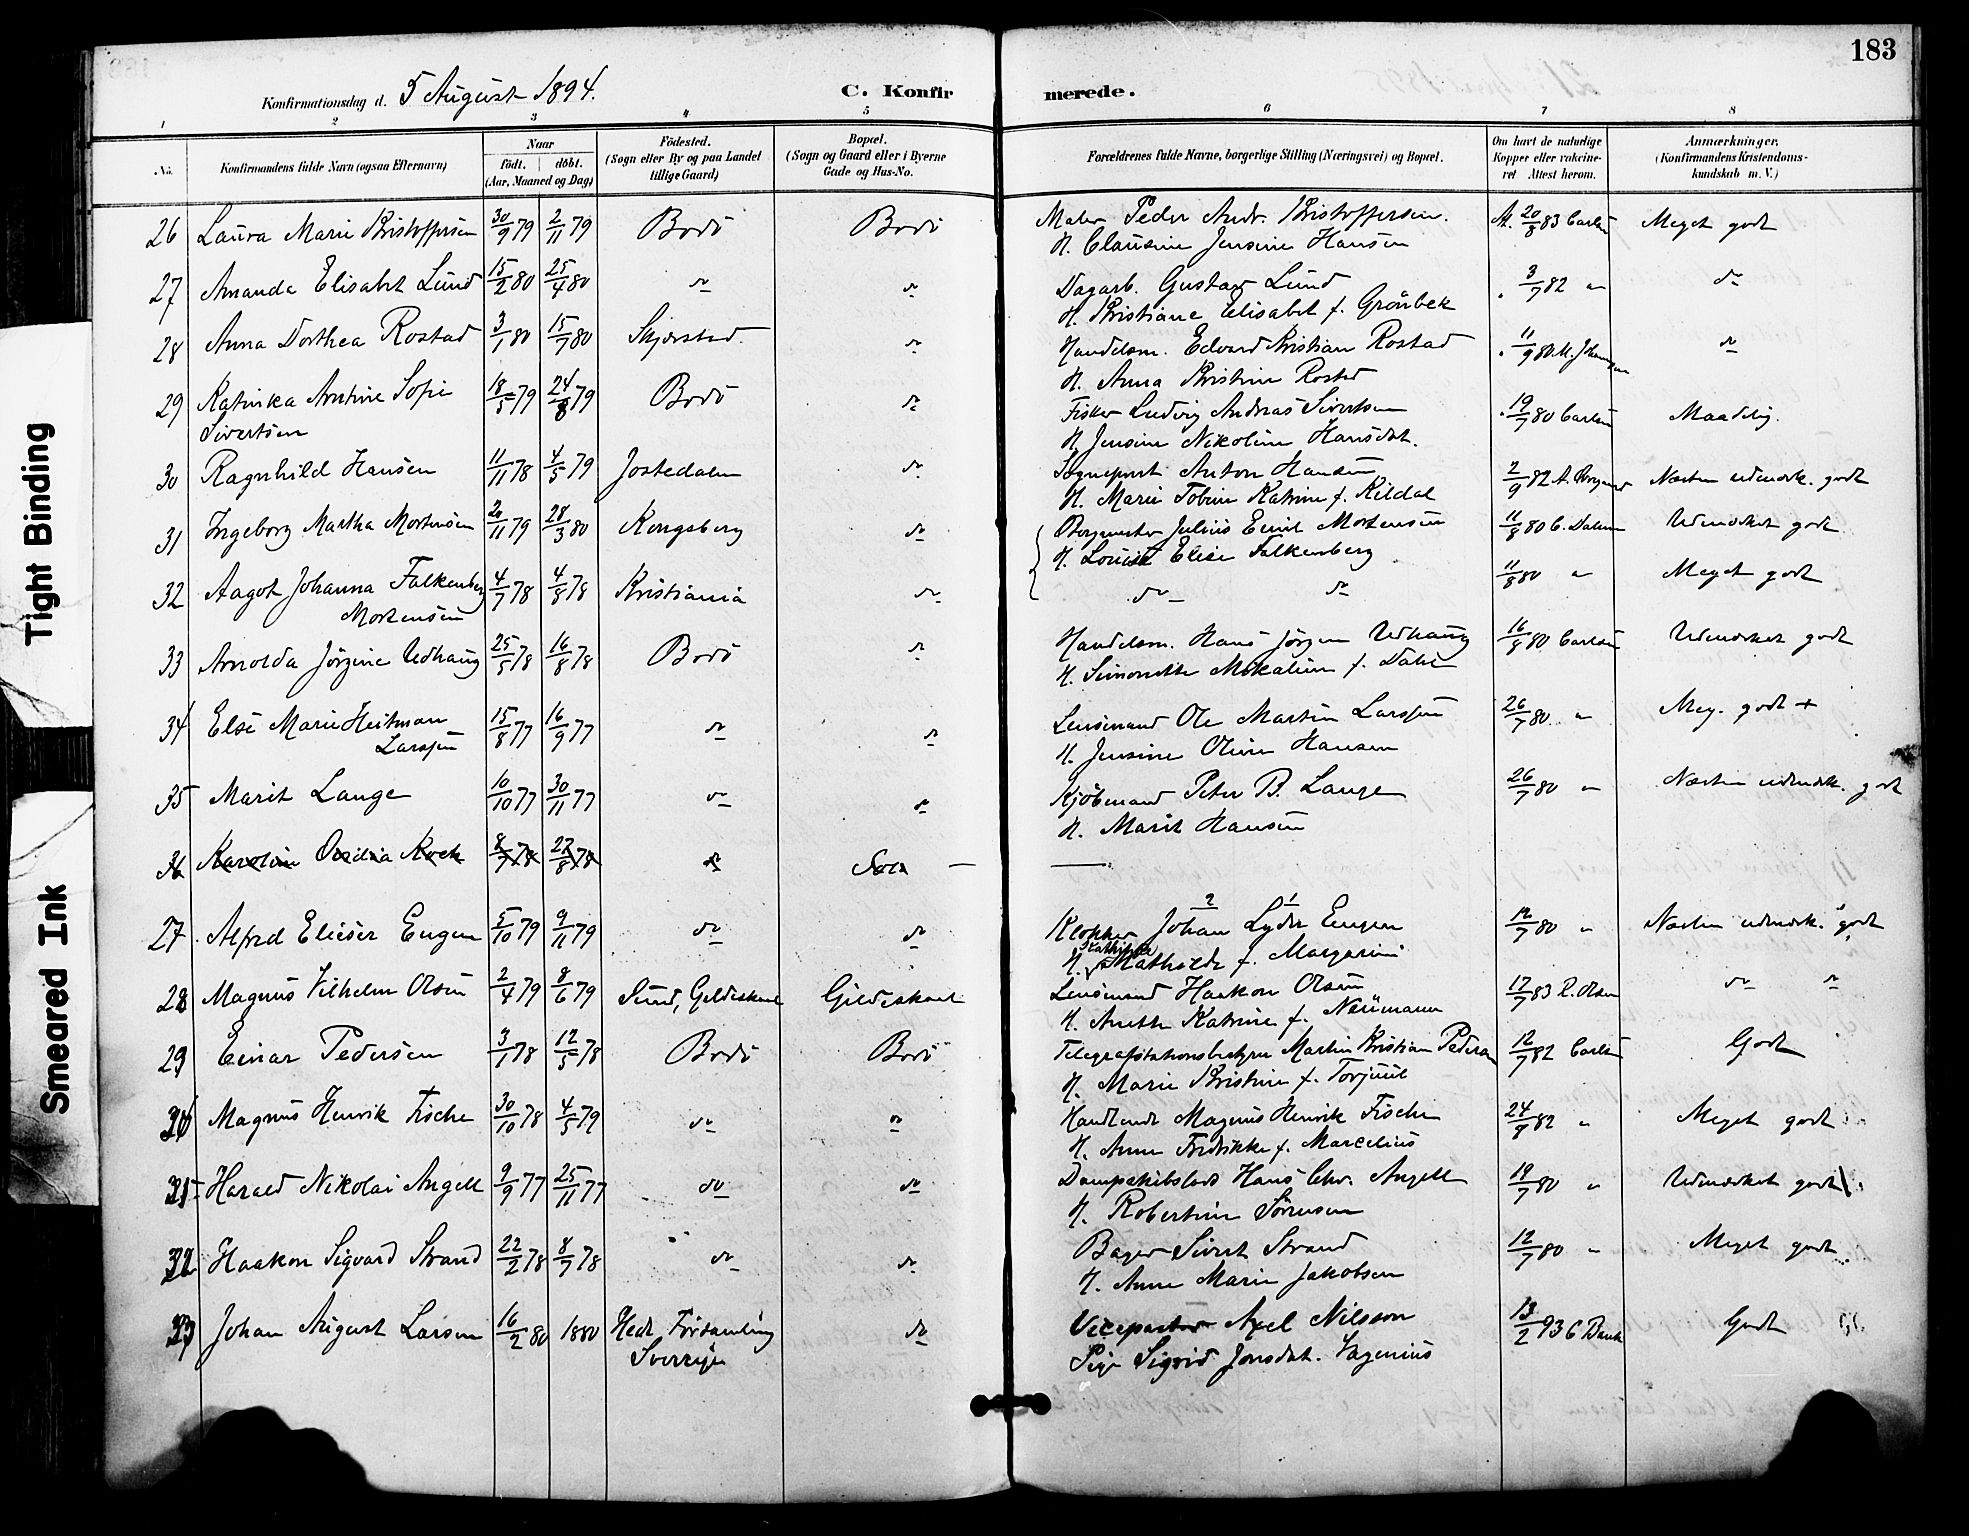 183
Konfirmationsdag d. 5 August 1894.
C. Konfirmerede.
1 2 3 4 5 6 7 8
No.
Konfirmandens fulde Navn (ogsaa Efternavn)
Naar
födt. döbt.
(Aar, Maaned og Dag)
Födested.
(Sogn eller By og paa Landet
tillige Gaard)
Bopæl.
(Sogn og Gaard eller i Byerne
Gade og Hus-No.
Forældrenes fulde Navne, borgerlige Stilling (Næringsvei) og Bopæl.
Om havt de naturlige
Kopper eller vakcine-
ret Attest herom.
Anmærkninger.
(Konfirmandens Kristendoms-
kundskab m. V.)
26 Laura Marie Kristoffersen 30/9 79 2/11 79 Bodö Bodö Maler Peder Andr. Kristoffersen. At. 20/8 83 Carlsen Meget godt
H. Clausine Jensine Hansen
27 Amanda Elisabet Lund 15/2 80 25/4 80 do do Dagarb. Gustav Lund " 3/7 82 " do
H. Kristiane Elisabet f. Grönbek
28 Anna Dorthea Rostad 3/1 80 15/7 80 Skjerstad. do Handelsm. Edvard Kristian Rostad " 11/9 80 M. Johannessen do
H. Anna Kristine Rostad
29 Katinka Antine Sofie 18/5 79 24/8 79 Bodö do Fisker Ludvig Andreas Sivertsen " 19/7 80 Carlsen Maadelig.
Sivertsen H. Jensine Nikoline Hansdat.
30 Ragnhild Hansen 11/11 78 4/5 79 Jostedalen do Sogneprest Anton Hansen 2/9 82 Næsten udmærk. godt
H. Marie Tobine Katrine f. Kildal
31 Ingeborg Martha Mortensen 20/11 79 28/3 80 Kongsberg do Borgmester Julius Emil Mortensen 11/8 80 C. Dalum Udmærket godt
H. Louise Elise Falkenberg
32 Aagot Johanna Falkenberg 4/7 78 4/8 78 Kristiania do do do 11/8 80 " Meget godt
Mortensen
33 Arnolda Jörgine Udhaug 25/5 78 16/8 78 Bodö do Handelsm. Hans Jörgen Udhaug 16/8 80 Carlsen Udmærket godt
H. Simonette Mekaline f. Dahl
34 Else Marie Heitman 15/8 77 16/9 77 do do Lensmand Ole Martin Larssen 26/7 80 " Meg. godt +
Larssen H. Jensine Oline Hansen
35 Marit Lange 10/10 77 30/11 77 do do Kjöbmand Peter B. Lange 26/7 80 " Næsten udmærk. godt
H. Marit Hansen
36 Karoline Ovidia Koch 8/7 78 27/8 78 do —
27 Alfred Elieser Eugen 5/10 79 9/11 79 do do Klokker Johan Lyder Eugen 12/7 80 " Næsten udmærk. godt
2 1
H. Kathinka Mathilde f. Margarini
28 Magnus Vilhelm Olsen 2/4 79 8/6 79 Sund, Gildeskaal Gildeskaal Lensmand Haakon Olsen 17/7 83 R. Olsen do do
H. Anette Katrine f. Neumann
29 Einar Pedersen 3/1 78 12/5 78 Bodö Bodö Telegrafstationsbestyrer Martin Kristian Pedersen 12/7 82 Carlsen Godt
H. Marie Kristine f. Torjuul
30 Magnus Henrik Fische 30/10 78 4/5 79 do do Handlende Magnus Henrik Fische 24/8 82 " Meget godt
H. Anne Fredrikke f. Marcelius
31 Harald Nikolai Angell 9/9 77 25/11 77 do do Dampskibslods Hans Chr. Angell 19/7 80 " Udmærket godt
H. Robertine Sörensen
32 Haakon Sigvard Strand 22/2 78 8/7 78 do do Bager Sivert Strand 12/7 80 " Meget godt
H. Anne Marie Jakobsen
33 Johan August Larsen 16/2 80 1880 Heds Församling do Vicepastor Axel Nilsson 13/2 93 Godt
Sverrige Pige Sigrid Jonsdat. Vagenius
Tight Binding
Smeared Ink